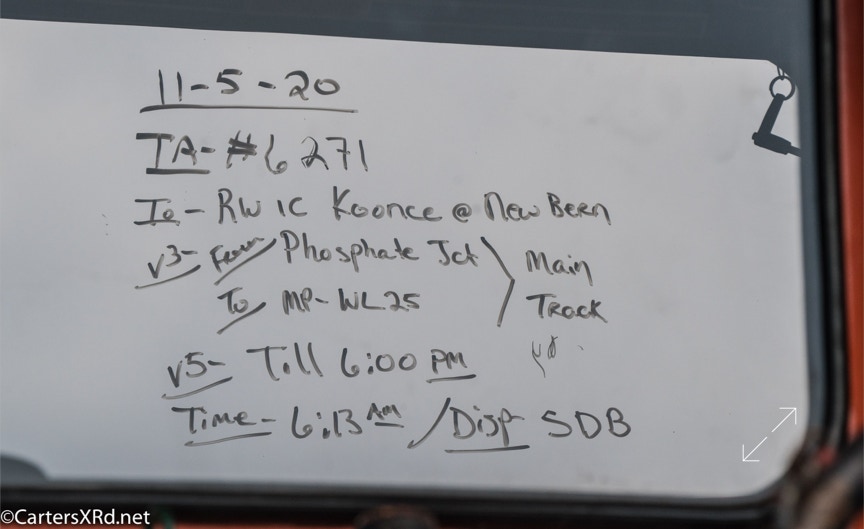 11-5-20
IA-#6271
To - RWIC Koonce @ New Bern
√3- From Phosphate Jct
To MP-WL25
Main
Track
√5- Till 6:00 PM
Time- 6:13 AM / Disp SDB
©CartersXRd.net